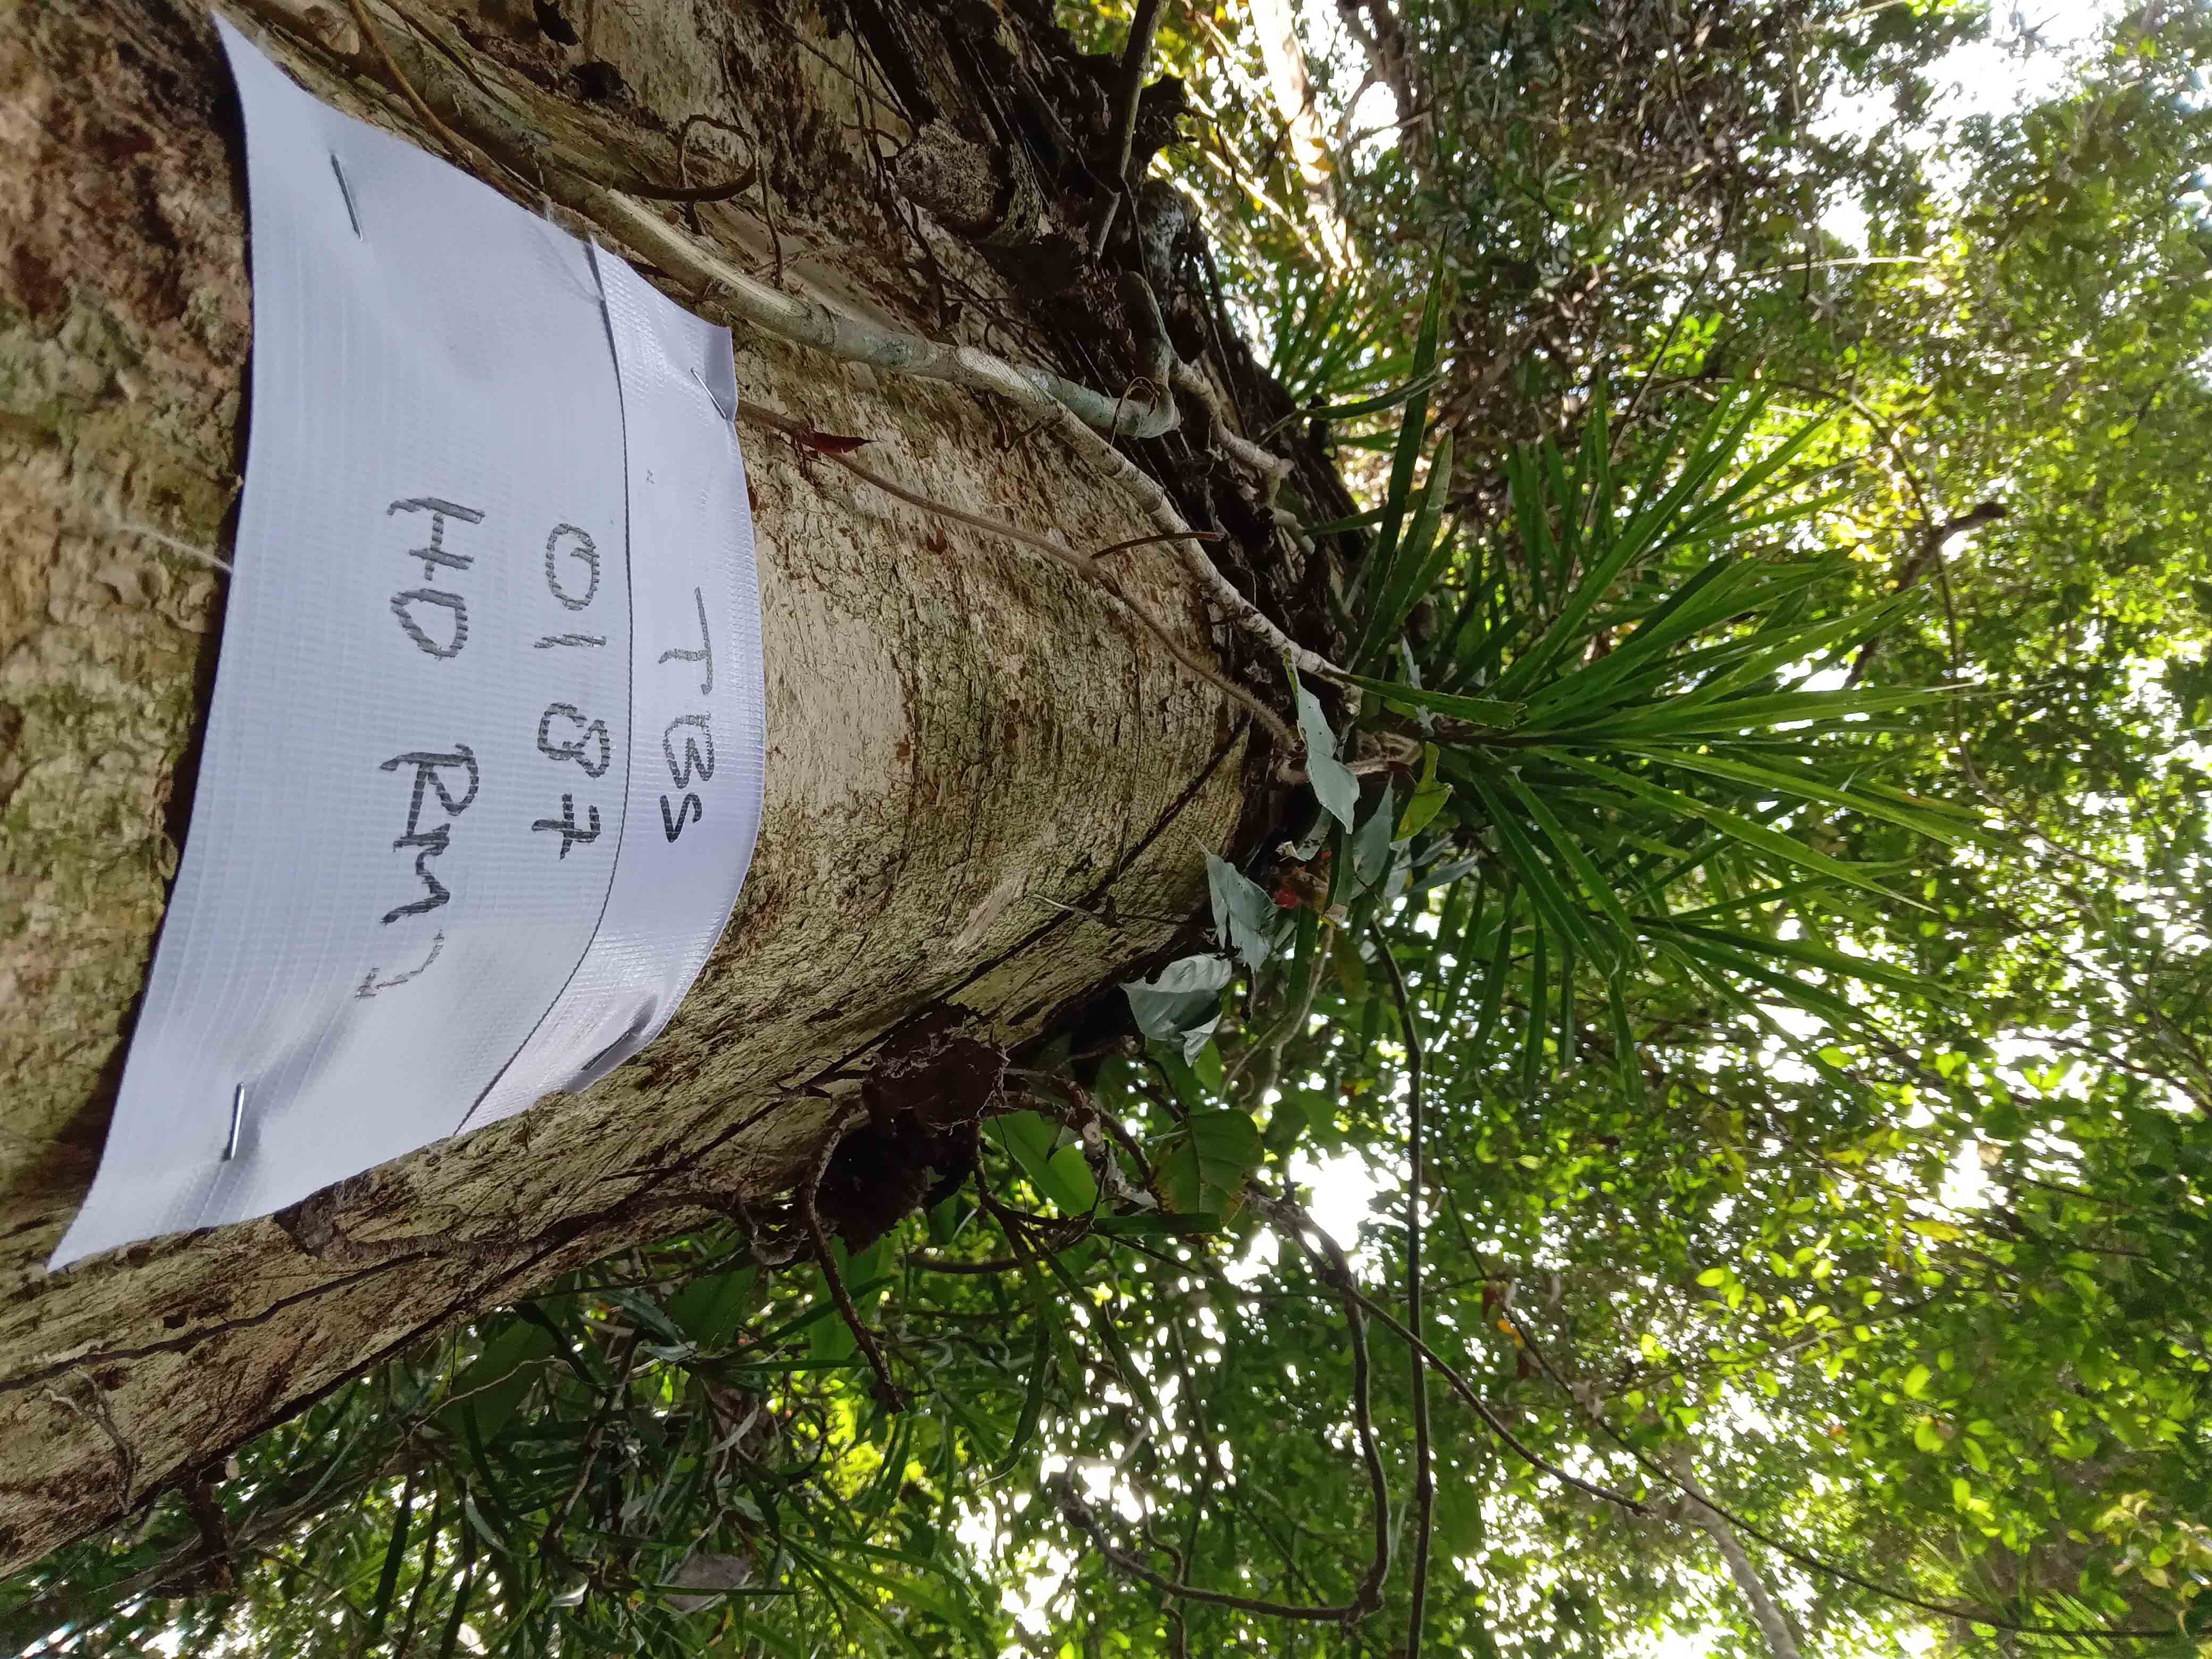 TBS
0187
HD RMI